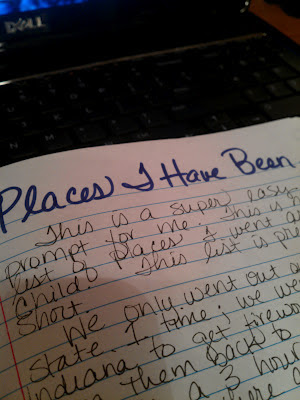 DELL
Places I Have Been
This is a super easy
prompt for me. This is
list of places I went a
Child. This list is pr
Short.
We only went out o
state 1 time; we we
Indiana to get firewo
them back to
a 3 hou